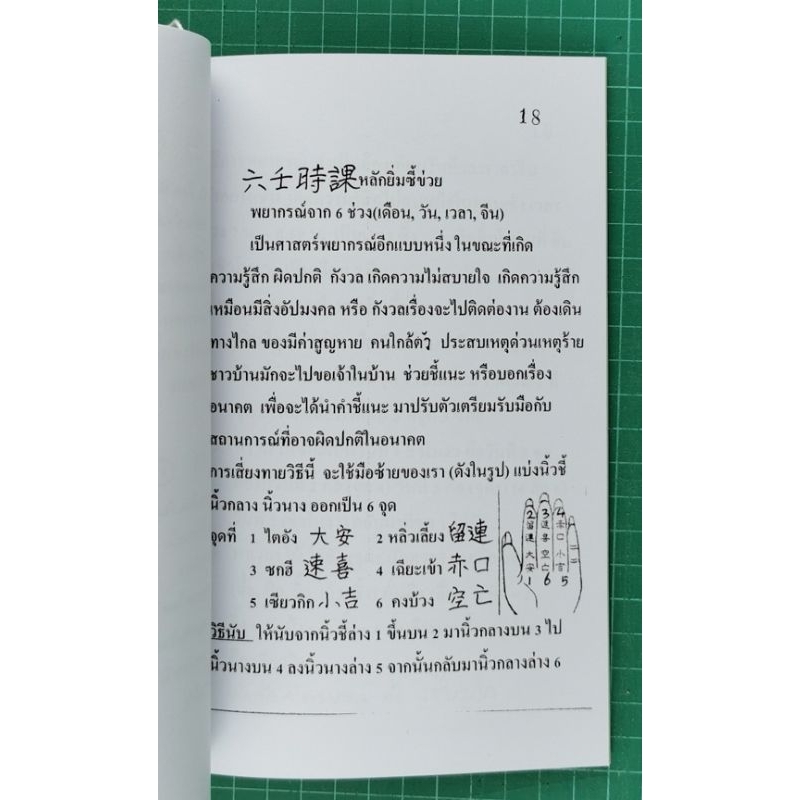 18
六壬時課หลักยิ่มซี้ข่วย
พยากรณ์จาก 6 ช่วง(เดือน, วัน, เวลา, จีน)
เป็นศาสตร์พยากรณ์อีกแบบหนึ่ง ในขณะที่เกิด
ความรู้สึก ผิดปกติ กังวล เกิดความไม่สบายใจ เกิดความรู้สึก
เหมือนมีสิ่งอัปมงคล หรือ กังวลเรื่องจะไปติดต่องาน ต้องเดิน
ทางไกล ของมีค่าสูญหาย คนใกล้ตัว ประสบเหตุด่วนเหตุร้าย
ชาวบ้านมักจะไปขอเจ้าในบ้าน ช่วยชี้แนะ หรือบอกเรื่อง
อนาคต เพื่อจะได้นำคำชี้แนะ มาปรับตัวเตรียมรับมือกับ
สถานการณ์ที่อาจผิดปกติในอนาคต
การเสี่ยงทายวิธีนี้ จะใช้มือซ้ายของเรา (ดังในรูป) แบ่งนิ้วชี้
นิ้วกลาง นิ้วนาง ออกเป็น 6 จุด
จุดที่ 1 ไตอัง 大安 2 หลิ่วเลี้ยง 留連
3 ซกฮี 速喜 4 เฉียะเข้า 赤口
5 เซียวกิก 小吉 6 คงบ้วง 空亡
2 3 4
留連 速喜 赤口
大安 空亡 小吉
1 6 5
วิธีนับ ให้นับจากนิ้วชี้ล่าง 1 ขึ้นบน 2 มานิ้วกลางบน 3 ไป
นิ้วนางบน 4 ลงนิ้วนางล่าง 5 จากนั้นกลับมานิ้วกลางล่าง 6